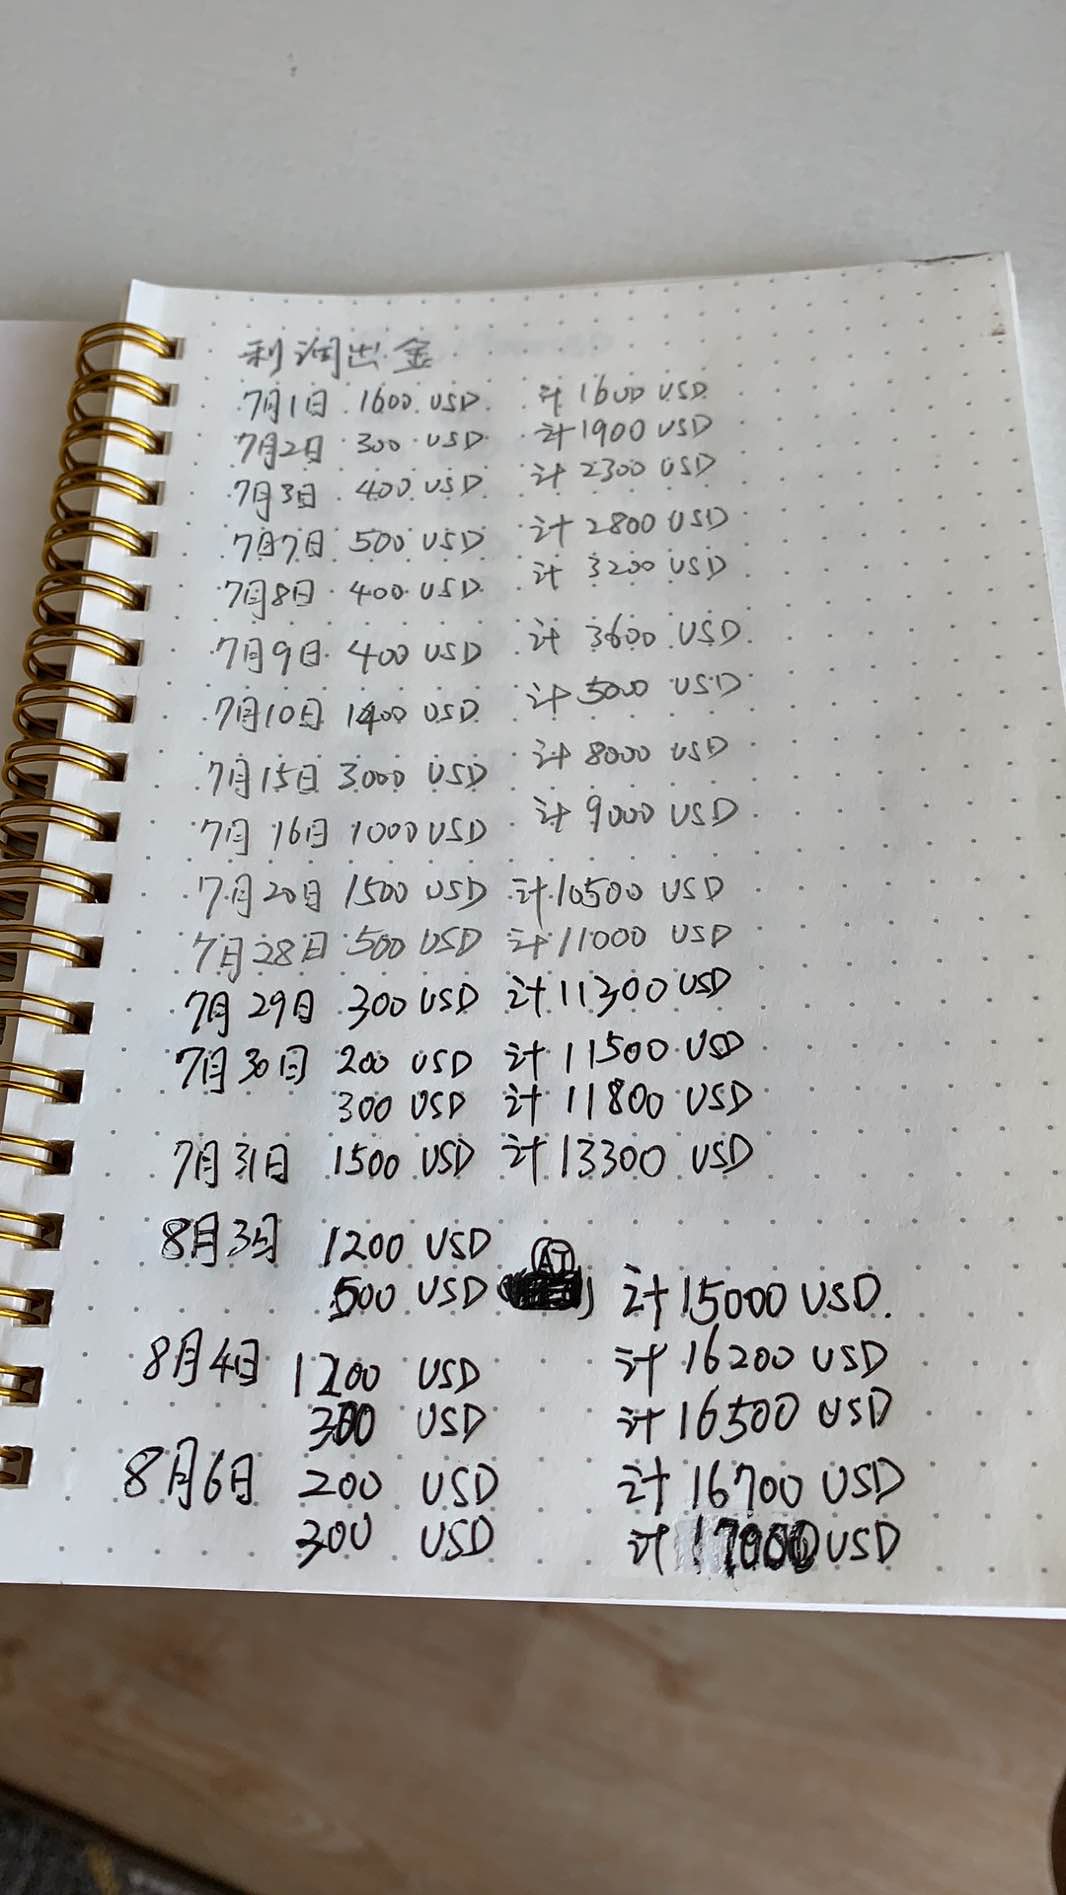 利润出金
7月1日 1600 USD 计1600 USD
7月2日 300 USD 计1900 USD
7月3日 400 USD 计2300 USD
7月7日 500 USD 计2800 USD
7月8日 400 USD 计3200 USD
7月9日 400 USD 计3600 USD
7月10日 1400 USD 计5000 USD
7月15日 3000 USD 计8000 USD
7月16日 1000 USD 计9000 USD
7月20日 1500 USD 计10500 USD
7月28日 500 USD 计11000 USD
7月29日 300 USD 计11300 USD
7月30日 200 USD 计11500 USD
300 USD 计11800 USD
7月31日 1500 USD 计13300 USD
8月3日 1200 USD
500 USD (AI) 计15000 USD.
8月4日 1200 USD 计16200 USD
300 USD 计16500 USD
8月6日 200 USD 计16700 USD
300 USD 计17000 USD